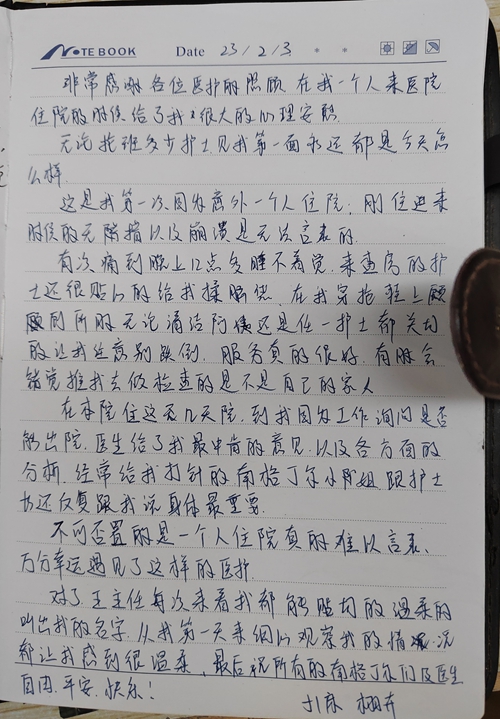 NOTE BOOK
Date 23/2/3
非常感谢各位医护的照顾 在我一个人来医院
住院的时候给了我很大的心理安慰
无论换班多少护士见我第一面永远都是今天怎
么样
这是我第一次因为意外一个人住院，刚住进来
时候的无阻措以及崩溃是无法言表的
有次痛到晚上12点多睡不着觉，来查房的护
士还很贴心的给我揉眼
在我穿拖鞋上
厕所时无论清洁阿姨还是任一护士都关切
的让我注意别跌倒，服务真的很好，有时会
错觉推我去做检查的是不是自己的家人
在本院住这么几天院，到我因为工作询问是否
能出院，医生给了我最中肯的意见，以及各方面的
分析，经常给我打针的南格丁尔小姐姐跟护士
长还反复跟我说身体最重要
不可否置的是一个人住院真的难以言表、
万分幸运遇见了这样的医护
对了王主任每次来看我都能贴切的温柔的
叫出我的名字，从我第一天来细心观察我的情况
都让我感到很温柔，最后祝所有的南格丁尔们及医生
自由、平安、快乐！
31床